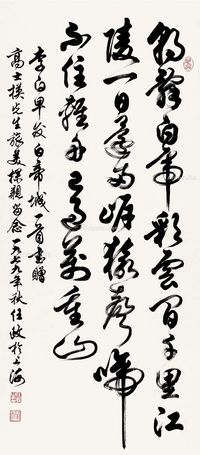 朝辞白帝彩云间千里江
陵一日还两岸猿声啼
不住轻舟已过万重山
李白早发白帝城一首书赠
高士模先生旅美探亲留念一九七九年秋任政于上海